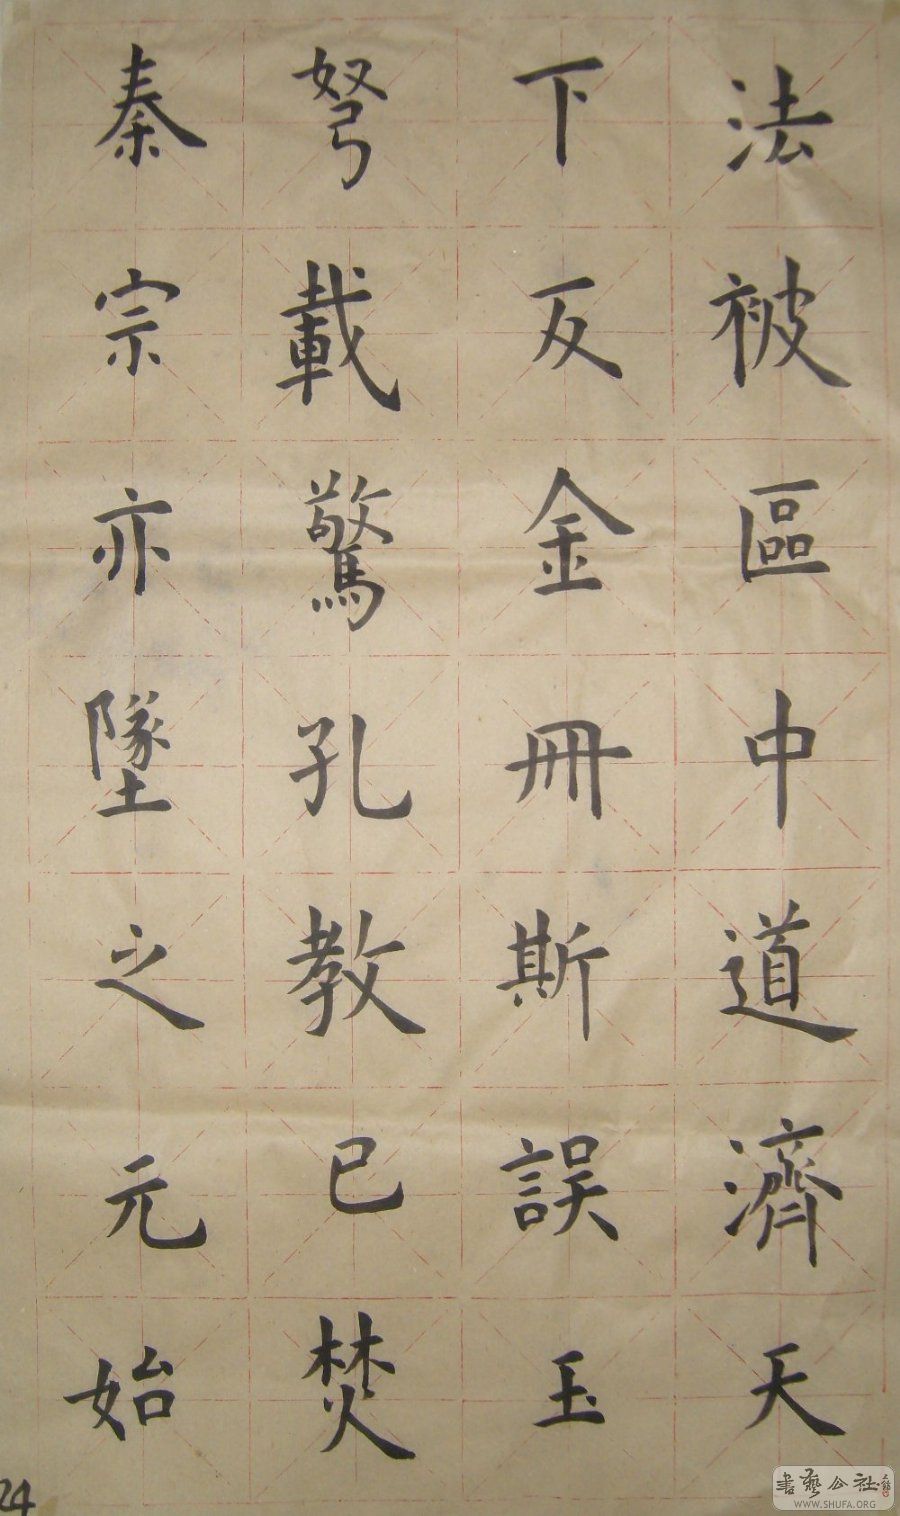 法被區中道濟天
下及金冊斯誤玉
弩載驚孔教已焚
秦宗亦墜之元始
24
書藝公社
WWW.SHUFA.ORG